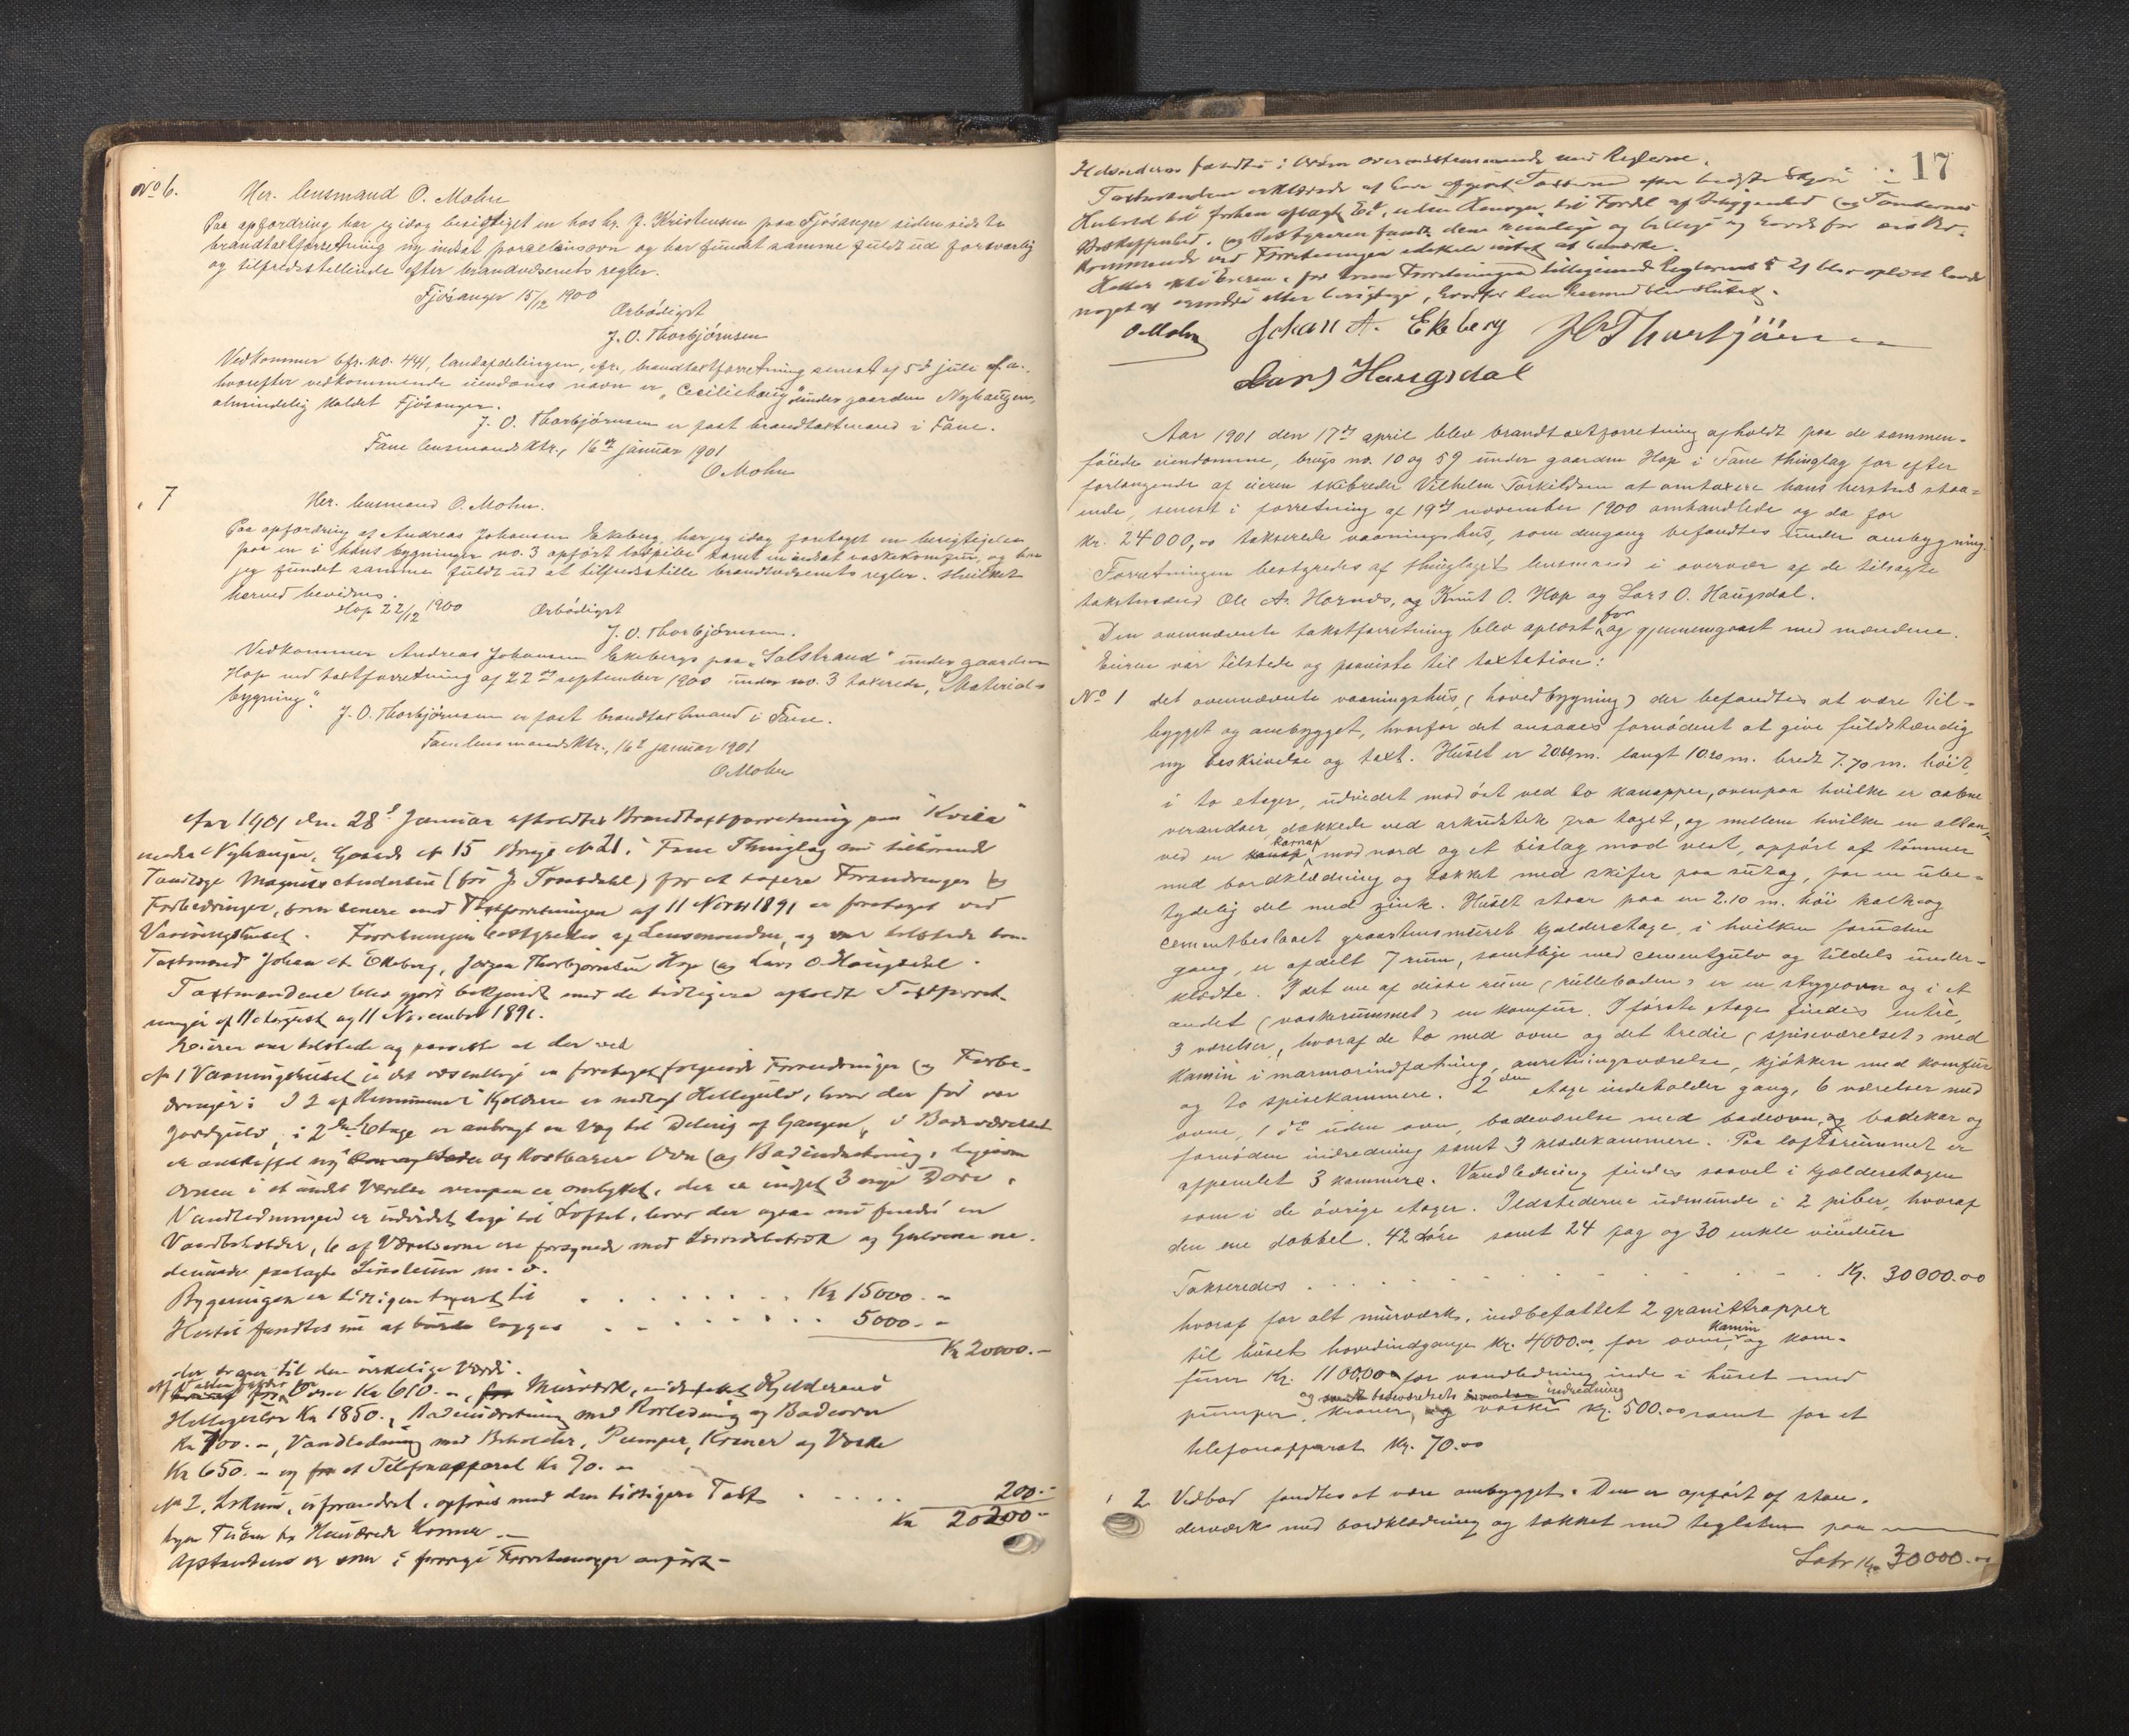 No 6.
Hr. lensmand O. Mohn
Paa opfordring har jeg idag besigtiget en hos hr. J. Kristensen paa Fjösanger siden sidste
brandtaxtforretning ny indsat porcelænsovn og har fundet samme fuldt ud forsvarlig
og tilfredsstillende efter brandvæsenets regler.
Fjösanger 15/12 1900
Ærbödigst
J. O. Thorbjörnsen
Vedkommer bfr. no. 441, landafdelingen, cfr. brandtaxtforretning senest af 5te juli f. a.,
hvorefter vedkommende eiendoms navn er "Ceciliehaug" under gaarden Nyhaugen,
almindelig kaldet Fjösanger.
J. O. Thorbjörnsen er fast brandtaxtmand i Fane.
Fane lensmandsktr., 16de januar 1901
O. Mohn
" 7
Hr. lensmand O. Mohn.
Paa opfordring af Andreas Johansen Ekeberg, har jeg idag foretaget en besigtigelse
paa en i hans bygninger no. 3 opfört lodpibe samt indsat vaskekomfur, og har
jeg fundet samme fuldt ud at tilfredsstille brandvæsenets regler. Hvilket
herved bevidnes.
Hop 22/12 1900 Ærbödigst
J. O. Thorbjörnsen.
Vedkommer Andreas Johansen Ekebergs paa "Solstrand" under gaarden
Hop ved taxtforretning af 22de september 1900 under no. 3 takserede "Material-
bygning".
J. O. Thorbjörnsen er fast brandtaxtmand i Fane.
Fane lensmandsktr., 16de januar 1901
O. Mohn
Aar 1901 den 28de Januar afholdtes Brandtaxtforretning paa "Kvila"
under Nyhaugen, Gaards No 15 Brugs No 21 i Fane Thinglag nu tilhörende
Tandlæge Magnus Andersen (för J. Tronsdahl) for at taxere Forandringer og
Forbedringer, som senere end Taxtforretningen af 11 Novbr 1891 er foretaget ved
Vaaningshuset. Forretningen bestyredes af Lensmanden, og var tilstede som
Taxtmænd Johan A. Ekeberg, Jörgen Thorbjörnsen Hop og Lars O. Haugsdal.
Taxtmændene blev gjort bekjendt med de tidligere afholdte Taxtforret-
ninger af 11 August og 11 November 1891.
Eieren var tilstede og paaviste at der ved
No 1 Vaaningshuset i det væsentlige er foretaget fölgende Forandringer og Forbe-
dringer: I 2 af Rummene i Kjelderen er nedlagt Hellegulv, hvor der för var
Jordgulv, i 2den Etage er anbragt en Væg til Deling af Gangen, i Badeværelset
er anskaffet ny og kostbarere Ovn og Badindretning, ligesom
Ovnen i et andet Værelse ovenpaa er ombyttet, der er indsat 3 nye Döre,
Vandledningen er udvidet lige til Loftet, hvor der ogsaa nu findes en
Vandbeholder, 6 af Værelserne ere forsynede med Lærredsbetræk og Gulvene ne-
denunder paalagte Linoleum m. v.
Bygningen er tidligere taxeret til . . . . . . . . Kr 15000.-
Hertil fandtes nu at burde lægges . . . . . . . . 5000.-
Kr 20000.-
der svarer til den virkelige Værdi.
Af Taxten falder paa Ovne Kr 610.-, Murværk, indbefattet Kjelderens
Hellegulve Kr 1850.-, Badeindretning med Rörledning og Badeovn
Kr 700.-, Vandledning med Beholder, Pumper, Kraner og Vaske
Kr 650.- og et Telefonapparat Kr 70.-
No 2. Lokum, uforandret, opföres med den tidligere Taxt . . . . . 200.-
Kr 20200.-
tyve Tusen to Hundrede Kroner.-
Afstandene er som i forrige Forretninger anfört.-
17
Ildstederne fandtes i Orden overensstemmende med Reglerne.
Taxtmændene erklærede at have afgivet Taxterne efter bedste Skjön i
Henhold til forhen aflagt Ed, uden Hensyn til Fordel af Beliggenhed og Tomternes
Beskaffenhed, og Bestyreren fandt dem rimelige og billige og havde for sit Ved-
kommende ved Forretningen ellers intet at bemærke.
Heller ikke Eieren, for hvem Forretningen tilligemed Reglernes § 21 blev oplæst havde
noget at erindre eller berigtige, hvorfor den hermed blev sluttet.
O. Mohn Johan A. Ekeberg J O Thorbjörnsen
Lars Haugsdal
Aar 1901 den 17de april blev brandtaxtforretning afholdt paa de sammen-
föiede eiendomme, brugs no. 10 og 59 under gaarden Hop i Fane thinglag for efter
forlangende af eieren skibreder Vilhelm Torkildsen at omtaxere hans hersteds staa-
ende, senest i forretning af 19de november 1900 omhandlede og da for
kr. 24000,00 takserede vaaningshus, som dengang befandtes under ombygning.
Forretningen bestyredes af thinglagets lensmand i overvær af de tilsagte
takstmænd Ole A. Hornæs, og Knut O. Hop og Lars O. Haugsdal.
Den ovennævnte takstforretning blev oplæst for og gjennemgaaet med mændene.
Eieren var tilstede og paaviste til taxtation:
No 1 det ovennævnte vaaningshus, (hovedbygning) der befandtes at være til-
bygget og ombygget, hvorfor det ansaaes fornödent at give fuldstændig
ny beskrivelse og taxt. Huset er 20.60 m. langt 10.20 m. bredt 7.70 m. höit,
i to etager, udvidet mod öst ved to karnapper, ovenpaa hvilke er aabne
verandaer, dækkede ved arkudstik fra taget, og mellem hvilke en altan,
ved en karnap mod nord og et bislag mod vest, opfört af tömmer
med bordklædning og tækket med skifer paa sutag, for en ube-
tydelig del med zink. Huset staar paa en 2.10 m. höi kalk og
cementbeslaaet graastensmuret kjælderetage, i hvilken foruden
gang, er afdelt 7 rum, samtlige med cementgulv og tildels under-
klædte. I det ene af disse rum (rulleboden) er en strygeovn og i et
andet (vaskerummet) en komfur. I förste etage findes entré,
3 værelser, hvoraf de to med ovne og det tredie (spiseværelset) med
kamin i marmorindfatning, anretningsværelse, kjökken med komfur
og to spisekammere. 2den etage indeholder gang, 6 værelser med
ovne, 1 do uden ovn, badeværelse med badeovn, og badekar og
fornöden indredning samt 3 klædekammere. Paa loftsrummet er
afpanelet 3 kammere. Vandledning findes saavel i kjælderetagen
som i de övrige etager. Ildstederne udmunde i 2 piber, hvoraf
den ene dobbel. 42 döre samt 24 fag og 30 enkle vinduer
Takseredes . . . . . . . . Kr. 30000.00
hvoraf for alt murværk, indbefattet 2 granittrapper
til husets hovedindgange kr. 4000.00, for ovne, kamin og kom-
furer Kr. 1100,00 for vandledning inde i huset med
og badeværelsets indredning
pumper, kraner, og vaske kr. 500.00 samt for et
telefonapparat Kr. 70.00
" 2 Vedbod fandtes at være ombygget. Den er opfört af sten-
derværk med bordklædning og tækket med teglsten paa
Latr. Kr. 30000.00